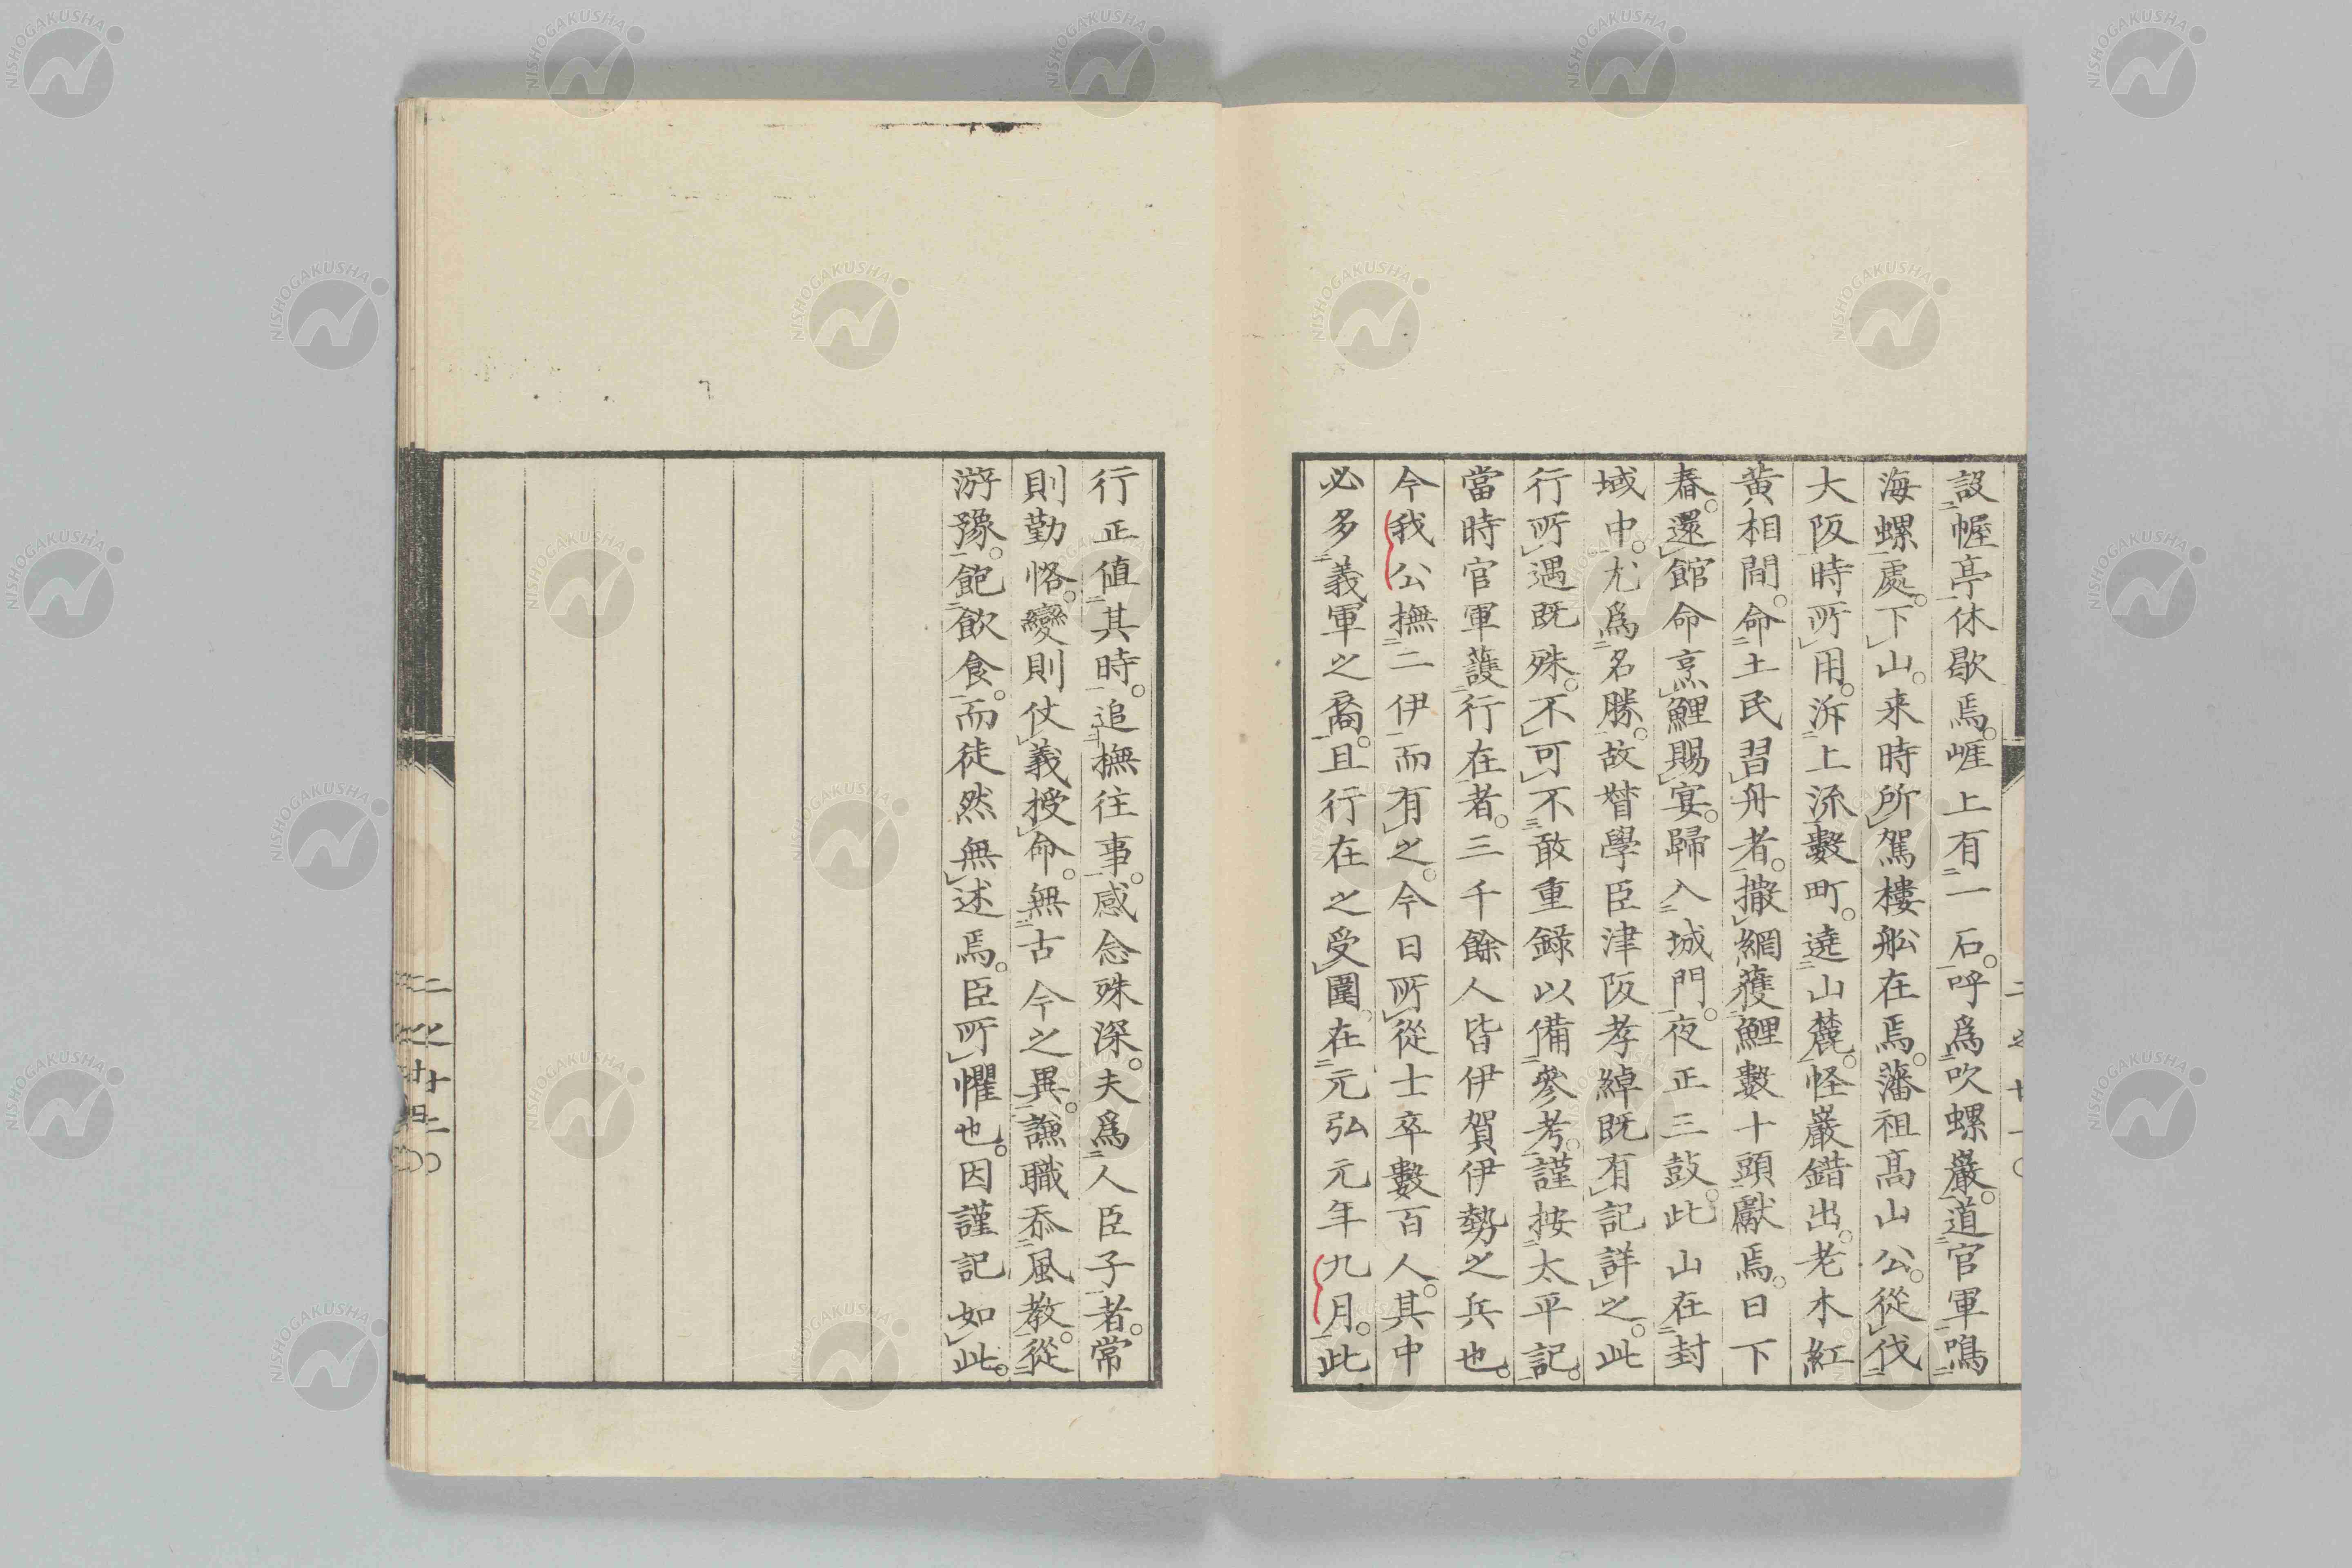 設幄亭休歇焉。崕上有一石。呼爲吹螺巖。道官軍鳴
海螺處。下山。来時所駕樓舩在焉。藩祖髙山公。從伐
大阪時所用。泝上流數町。遶山麓。怪巖錯出。老木紅
黄相間。命土民習舟者。撒網獲鯉數十頭獻焉。日下
春。還館命烹鯉賜宴。歸入城門。夜正三鼓。此山在封
域中。尤爲名勝。故督學臣津阪孝綽既有記詳之。此
行所遇既殊。不可不敢重錄以備參考。謹按太平記。
當時官軍護行在者。三千餘人皆伊賀伊勢之兵也。
今我公撫二伊而有之。今日所從士卒數百人。其中
必多義軍之裔。且行在之受圍。在元弘元年九月。此
行正値其時。追撫往事。感念殊深。夫爲人臣子者。常
則勤恪。變則仗義授命。無古今之異。謙職忝風教。從
游豫。飽飲食。而徒然無述焉。臣所懼也。因謹記如此。
二之廿二〇